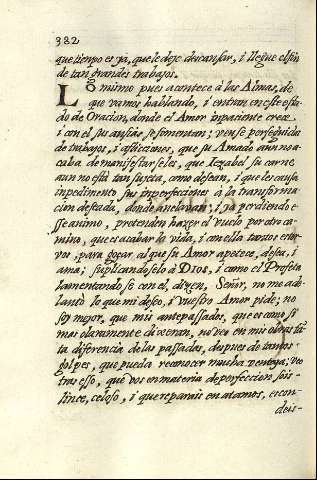 382
que tiempo es ya, que le dexe descansar, i llegue el fin
de tan grandes trabajos.
Lo mismo pues acontece à las Almas, de
que vamos hablando, i entran en este esta-
do de Oracion, donde el Amor inpaciente crece,
i con el sus ansias se fomentan; vense perseguida
de trabajos, i aflicciones, que su Amado aun no a-
caba de manifestarseles, que Iezabel su carne
aun no està tan sujeta, como desean, i que les causa
inpedimento sus inperfecciones à la transforma-
cion deseada, donde anelavan; i no perdiendo e-
sse animo, pretenden hazer el vuelo por otro ca-
mino, que es acabar la vida, i con ella tantos estor-
vos, para gozar al que su Amor apetece, desea, i
ama; suplicandoselo à DIOS, i como el Profeta
lamentandose con el, dizen, Señor, no me ad-
lanto lo que mi deseo, i vuestro Amor pide; no
soy mejor, que mis antepassados, que es como si
mas claramente dixeran, no veo en mis obras tã-
ta diferencia de las passadas, despues de tantos
golpes, que pueda reconocer mucha ventaja; ve
tras esso, que vos en materia de perfeccion sois
lince, celoso, i que reparais en atamos, escon-
deis-